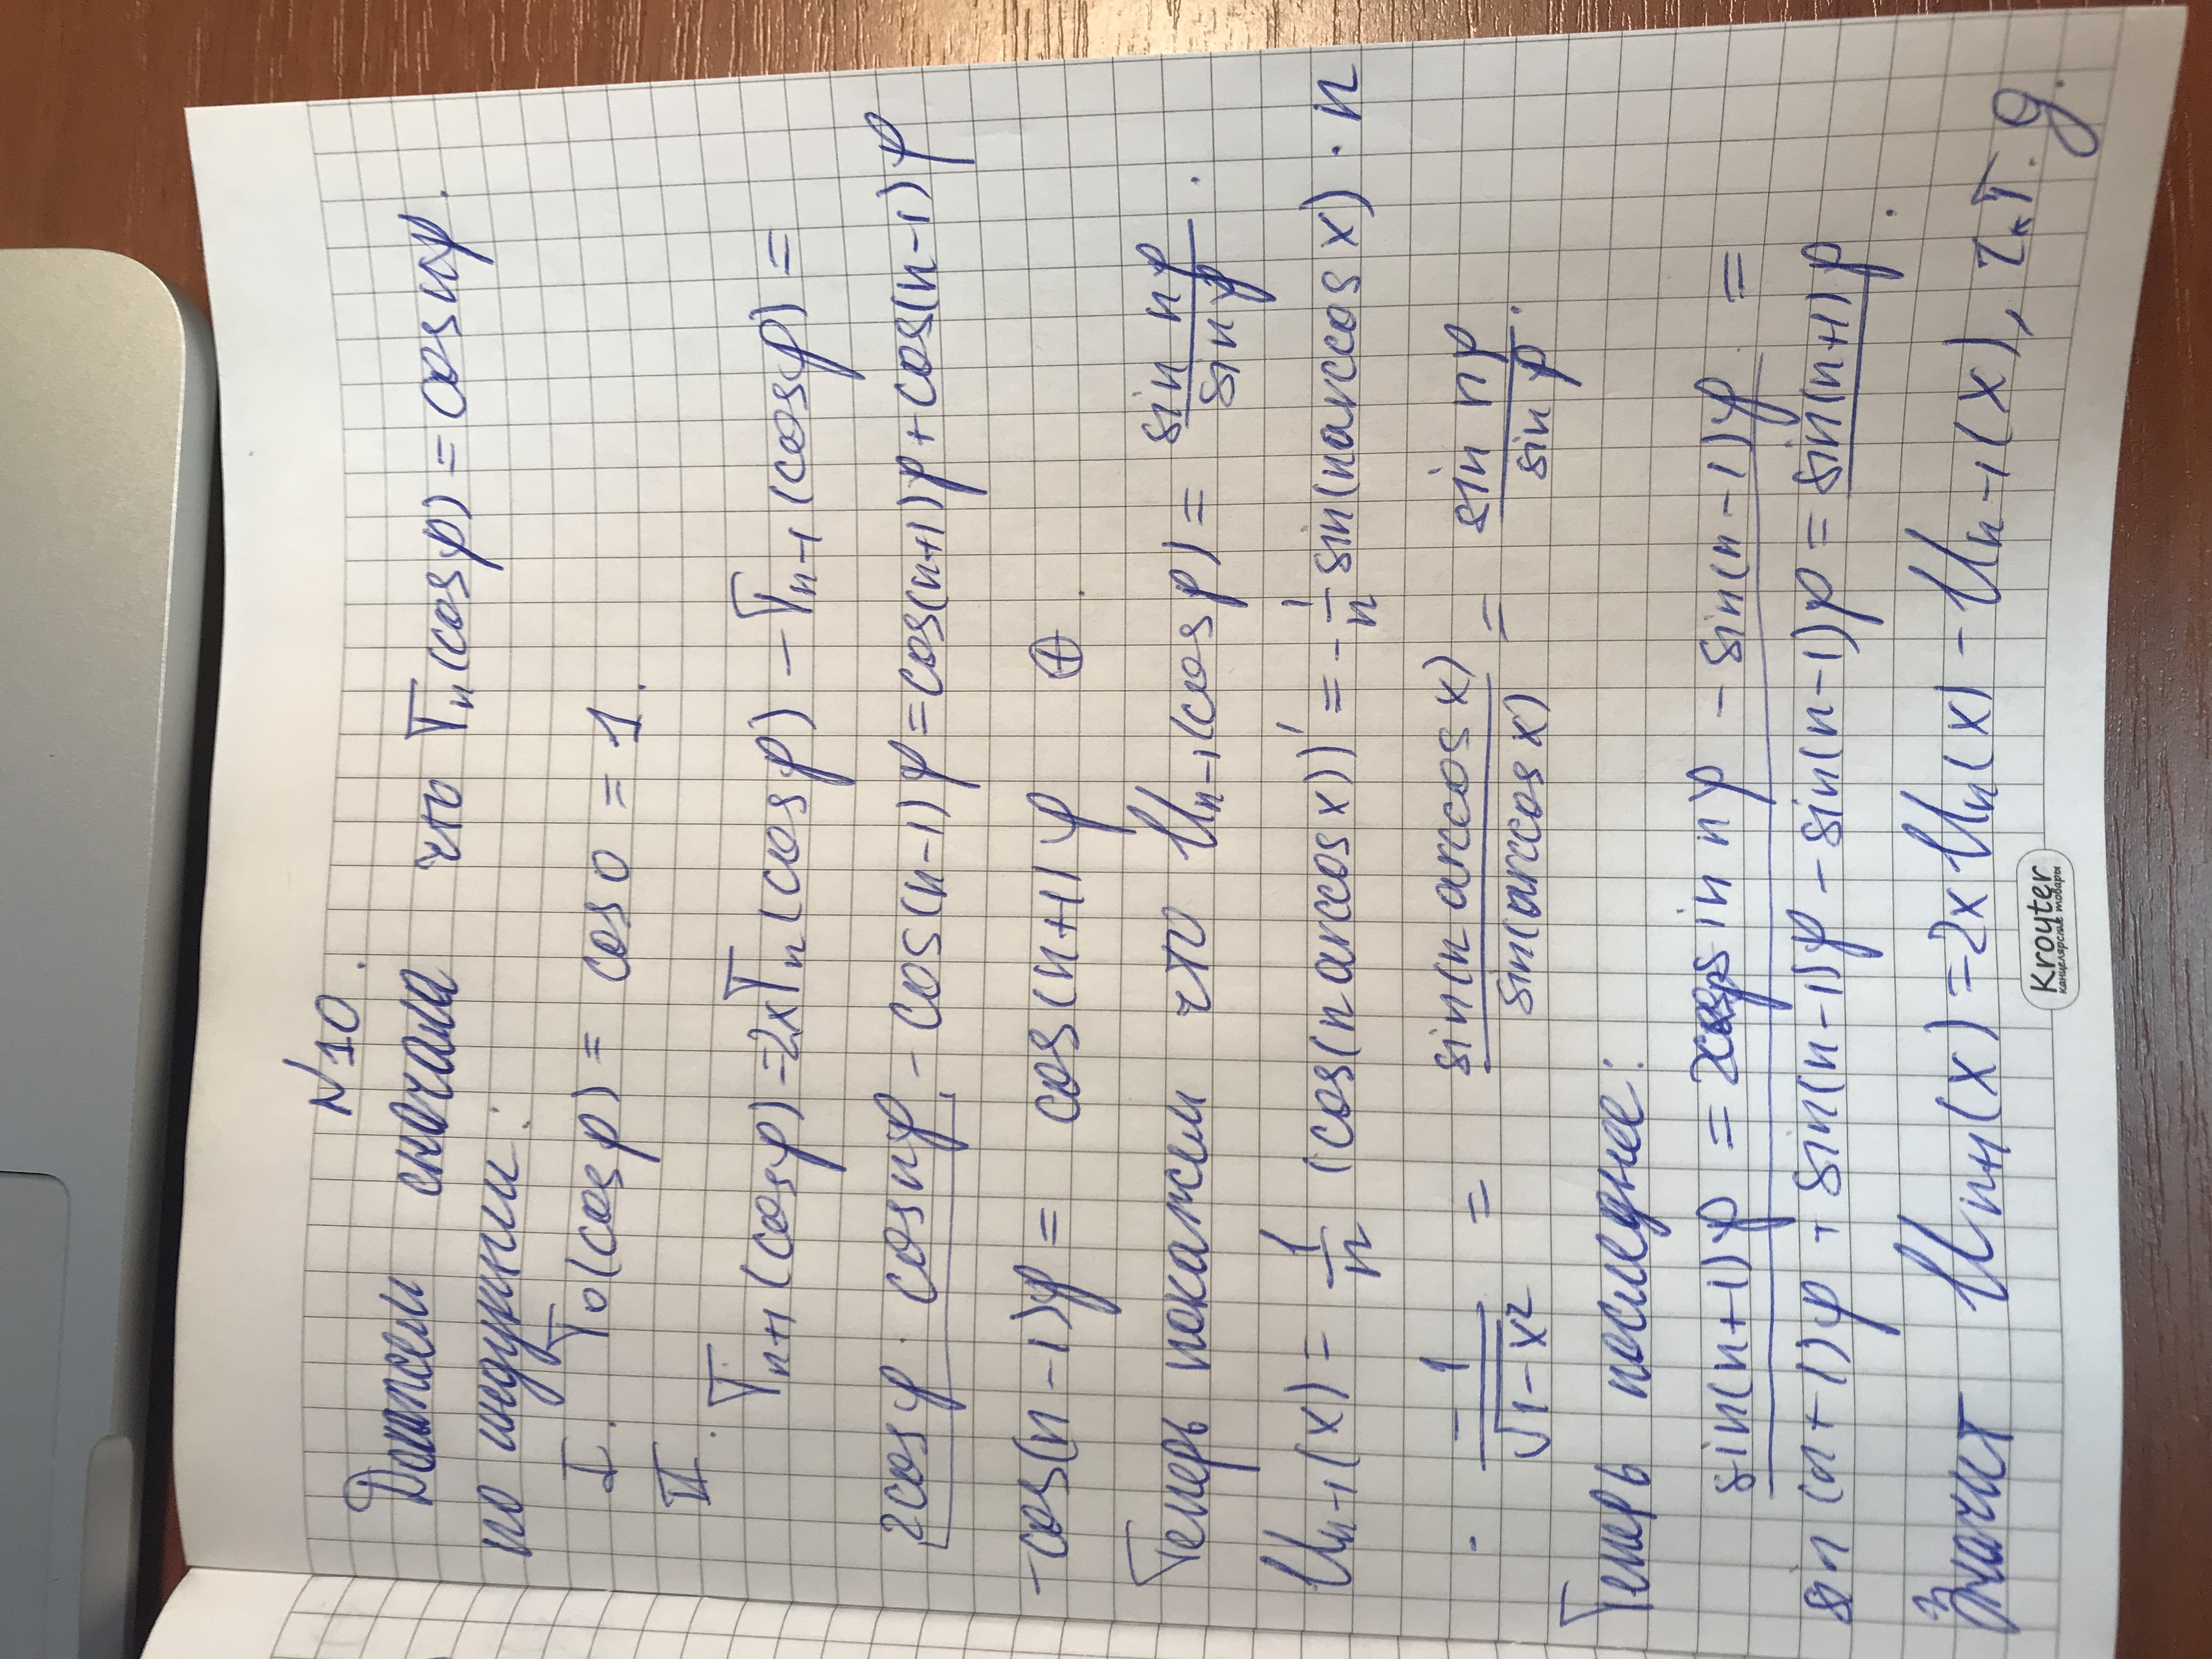 №10.
Докажем сначала что Tₙ(cosφ) = cos nφ.
по индукции:
I. T₀(cosφ) = cos 0 = 1.
II.
Tₙ₊₁(cosφ) = 2xTₙ(cosφ) − Tₙ₋₁(cosφ) =
2cosφ · cos nφ − cos(n−1)φ = cos(n+1)φ + cos(n−1)φ
−cos(n−1)φ = cos(n+1)φ ⊕.
Теперь покажем что Uₙ₋₁(cosφ) = sin nφ / sin φ.
Uₙ₋₁(x) = 1/n (cos(n arccos x))' = −1/n sin(n arccos x) · n
· −1/√(1−x²) = sin(n arccos x)/sin(arccos x) = sin nφ / sin φ.
Теперь последнее:
sin(n+1)φ = 2cosφ sin nφ − sin(n−1)φ =
sin(n+1)φ + sin(n−1)φ − sin(n−1)φ = sin(n+1)φ.
Значит Uₙ₊₁(x) = 2xUₙ(x) − Uₙ₋₁(x), ч.т.д.
Kroyter
канцелярские товары